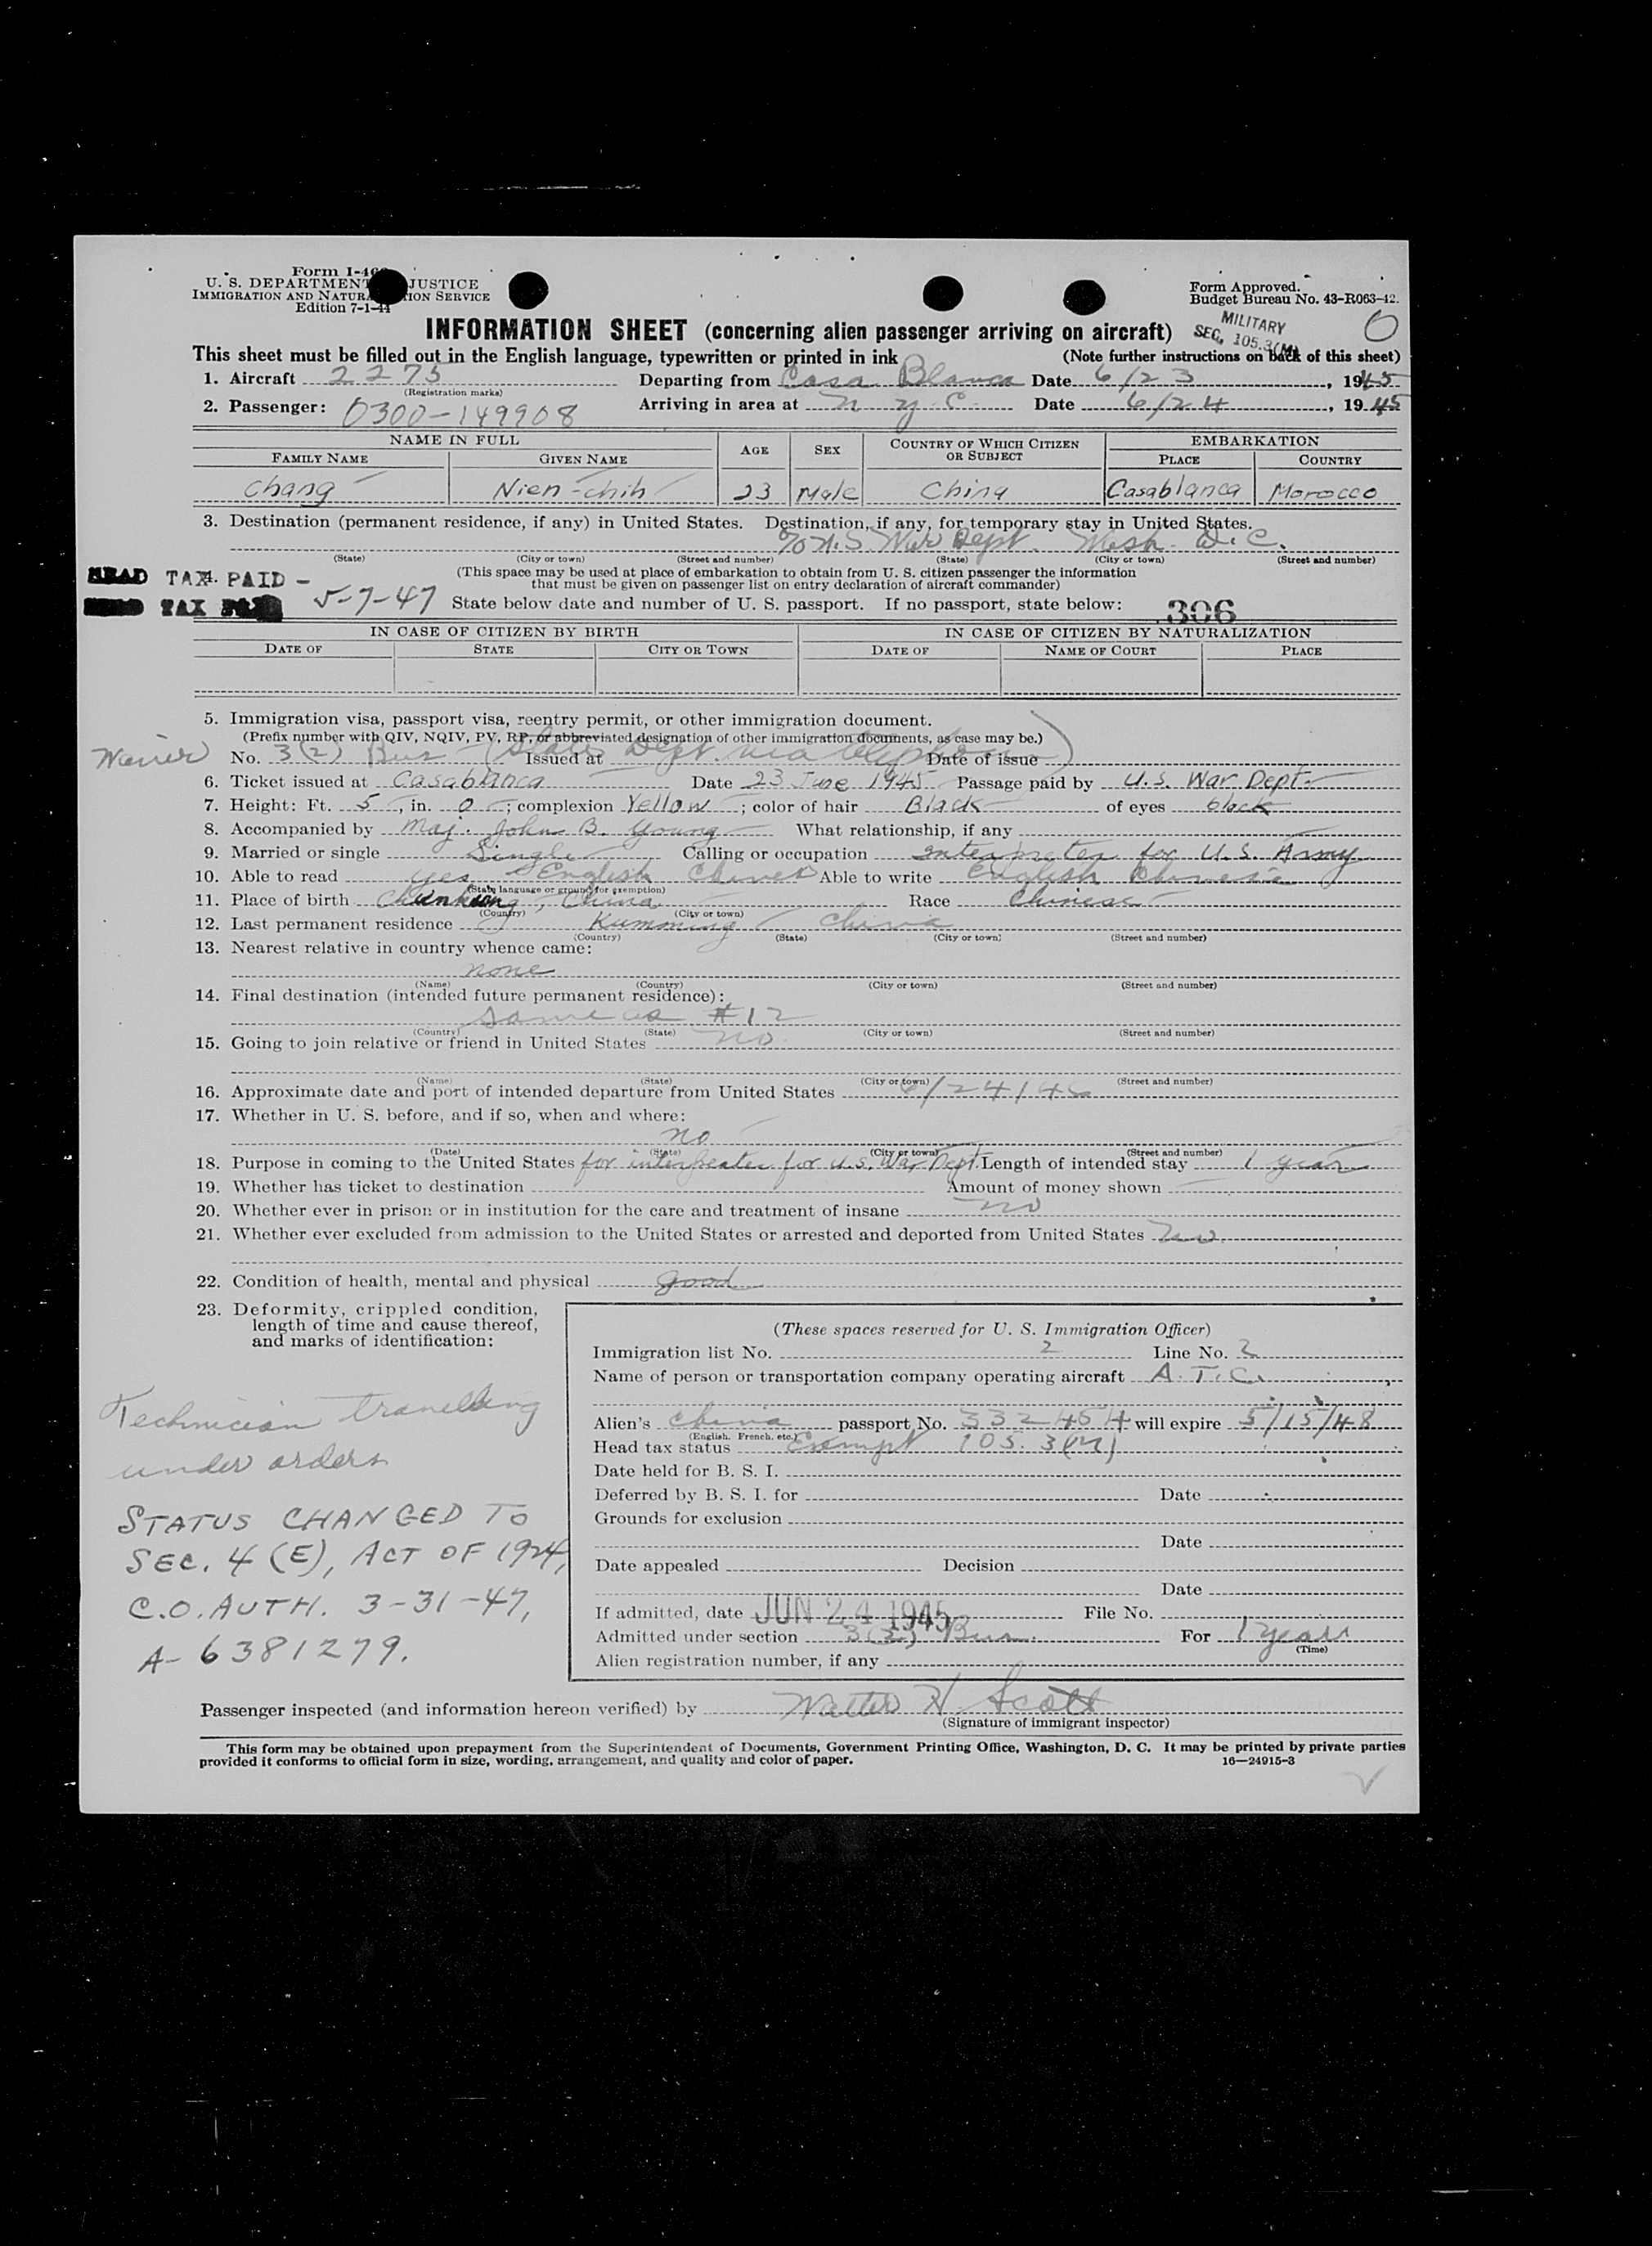 Form I-46
U. S. DEPARTMENT JUSTICE
IMMIGRATION AND NATUR TION SERVICE
Edition 7-1-44
Form Approved.
Budget Bureau No. 43-R063-42.
MILITARY
SEC. 105.3(M)
0
INFORMATION SHEET (concerning alien passenger arriving on aircraft)
This sheet must be filled out in the English language, typewritten or printed in ink (Note further instructions on back of this sheet)
1. Aircraft 2275 Departing from Casa Blanca Date 6/23, 1945
(Registration marks)
2. Passenger: 0300-149908 Arriving in area at N Y C Date 6/24, 1945
NAME IN FULL AGE SEX COUNTRY OF WHICH CITIZEN OR SUBJECT EMBARKATION
FAMILY NAME GIVEN NAME PLACE COUNTRY
Chang Nien-chih 23 Male China Casablanca Morocco
3. Destination (permanent residence, if any) in United States. Destination, if any, for temporary stay in United States.
% U.S War Dept. Wash. D.C.
(State) (City or town) (Street and number) (State) (City or town) (Street and number)
HEAD TAX PAID - 5-7-47
4. (This space may be used at place of embarkation to obtain from U. S. citizen passenger the information
that must be given on passenger list on entry declaration of aircraft commander)
HEAD TAX
State below date and number of U. S. passport. If no passport, state below: 306
IN CASE OF CITIZEN BY BIRTH IN CASE OF CITIZEN BY NATURALIZATION
DATE OF STATE CITY OR TOWN DATE OF NAME OF COURT PLACE
5. Immigration visa, passport visa, reentry permit, or other immigration document.
(Prefix number with QIV, NQIV, PV, RP, or abbreviated designation of other immigration documents, as case may be.)
Waiver No. 3(2) Bus (State Dept. via telephone) Issued at Date of issue
6. Ticket issued at Casablanca Date 23 June 1945 Passage paid by U.S. War Dept.
7. Height: Ft. 5, in. 0; complexion Yellow; color of hair Black of eyes black
8. Accompanied by Maj. John B. Young What relationship, if any
9. Married or single Single Calling or occupation Interpreter for U.S. Army
10. Able to read yes English Chinese Able to write English Chinese
(State language or ground for exemption)
11. Place of birth Chunking, China Race Chinese
(Country) (City or town)
12. Last permanent residence Kumming China
(Country) (State) (City or town) (Street and number)
13. Nearest relative in country whence came:
none
(Name) (Country) (City or town) (Street and number)
14. Final destination (intended future permanent residence):
Same as #12
(Country) (State) (City or town) (Street and number)
15. Going to join relative or friend in United States no
(Name) (State) (City or town) (Street and number)
16. Approximate date and port of intended departure from United States 6/24/46
17. Whether in U. S. before, and if so, when and where:
no
(Date) (State) (City or town) (Street and number)
18. Purpose in coming to the United States for interpeater for U.S. War Dept. Length of intended stay 1 year
19. Whether has ticket to destination Amount of money shown
20. Whether ever in prison or in institution for the care and treatment of insane no
21. Whether ever excluded from admission to the United States or arrested and deported from United States No
22. Condition of health, mental and physical good
23. Deformity, crippled condition,
length of time and cause thereof,
and marks of identification:
Technician travelling
under orders
STATUS CHANGED TO
SEC. 4 (E), ACT OF 1924,
C.O. AUTH. 3-31-47,
A-6381279.
(These spaces reserved for U. S. Immigration Officer)
Immigration list No. 2 Line No. 2
Name of person or transportation company operating aircraft A.T.C.
Alien's China passport No. 332454 will expire 5/15/48
(English, French, etc.)
Head tax status Exempt 105.3(M)
Date held for B. S. I.
Deferred by B. S. I. for Date
Grounds for exclusion
Date
Date appealed Decision
Date
If admitted, date JUN 24 1945 File No.
Admitted under section 3(2) Bus. For 1 year
(Time)
Alien registration number, if any
Passenger inspected (and information hereon verified) by Walter H. Scott
(Signature of immigrant inspector)
This form may be obtained upon prepayment from the Superintendent of Documents, Government Printing Office, Washington, D. C. It may be printed by private parties
provided it conforms to official form in size, wording, arrangement, and quality and color of paper. 16—24915-3